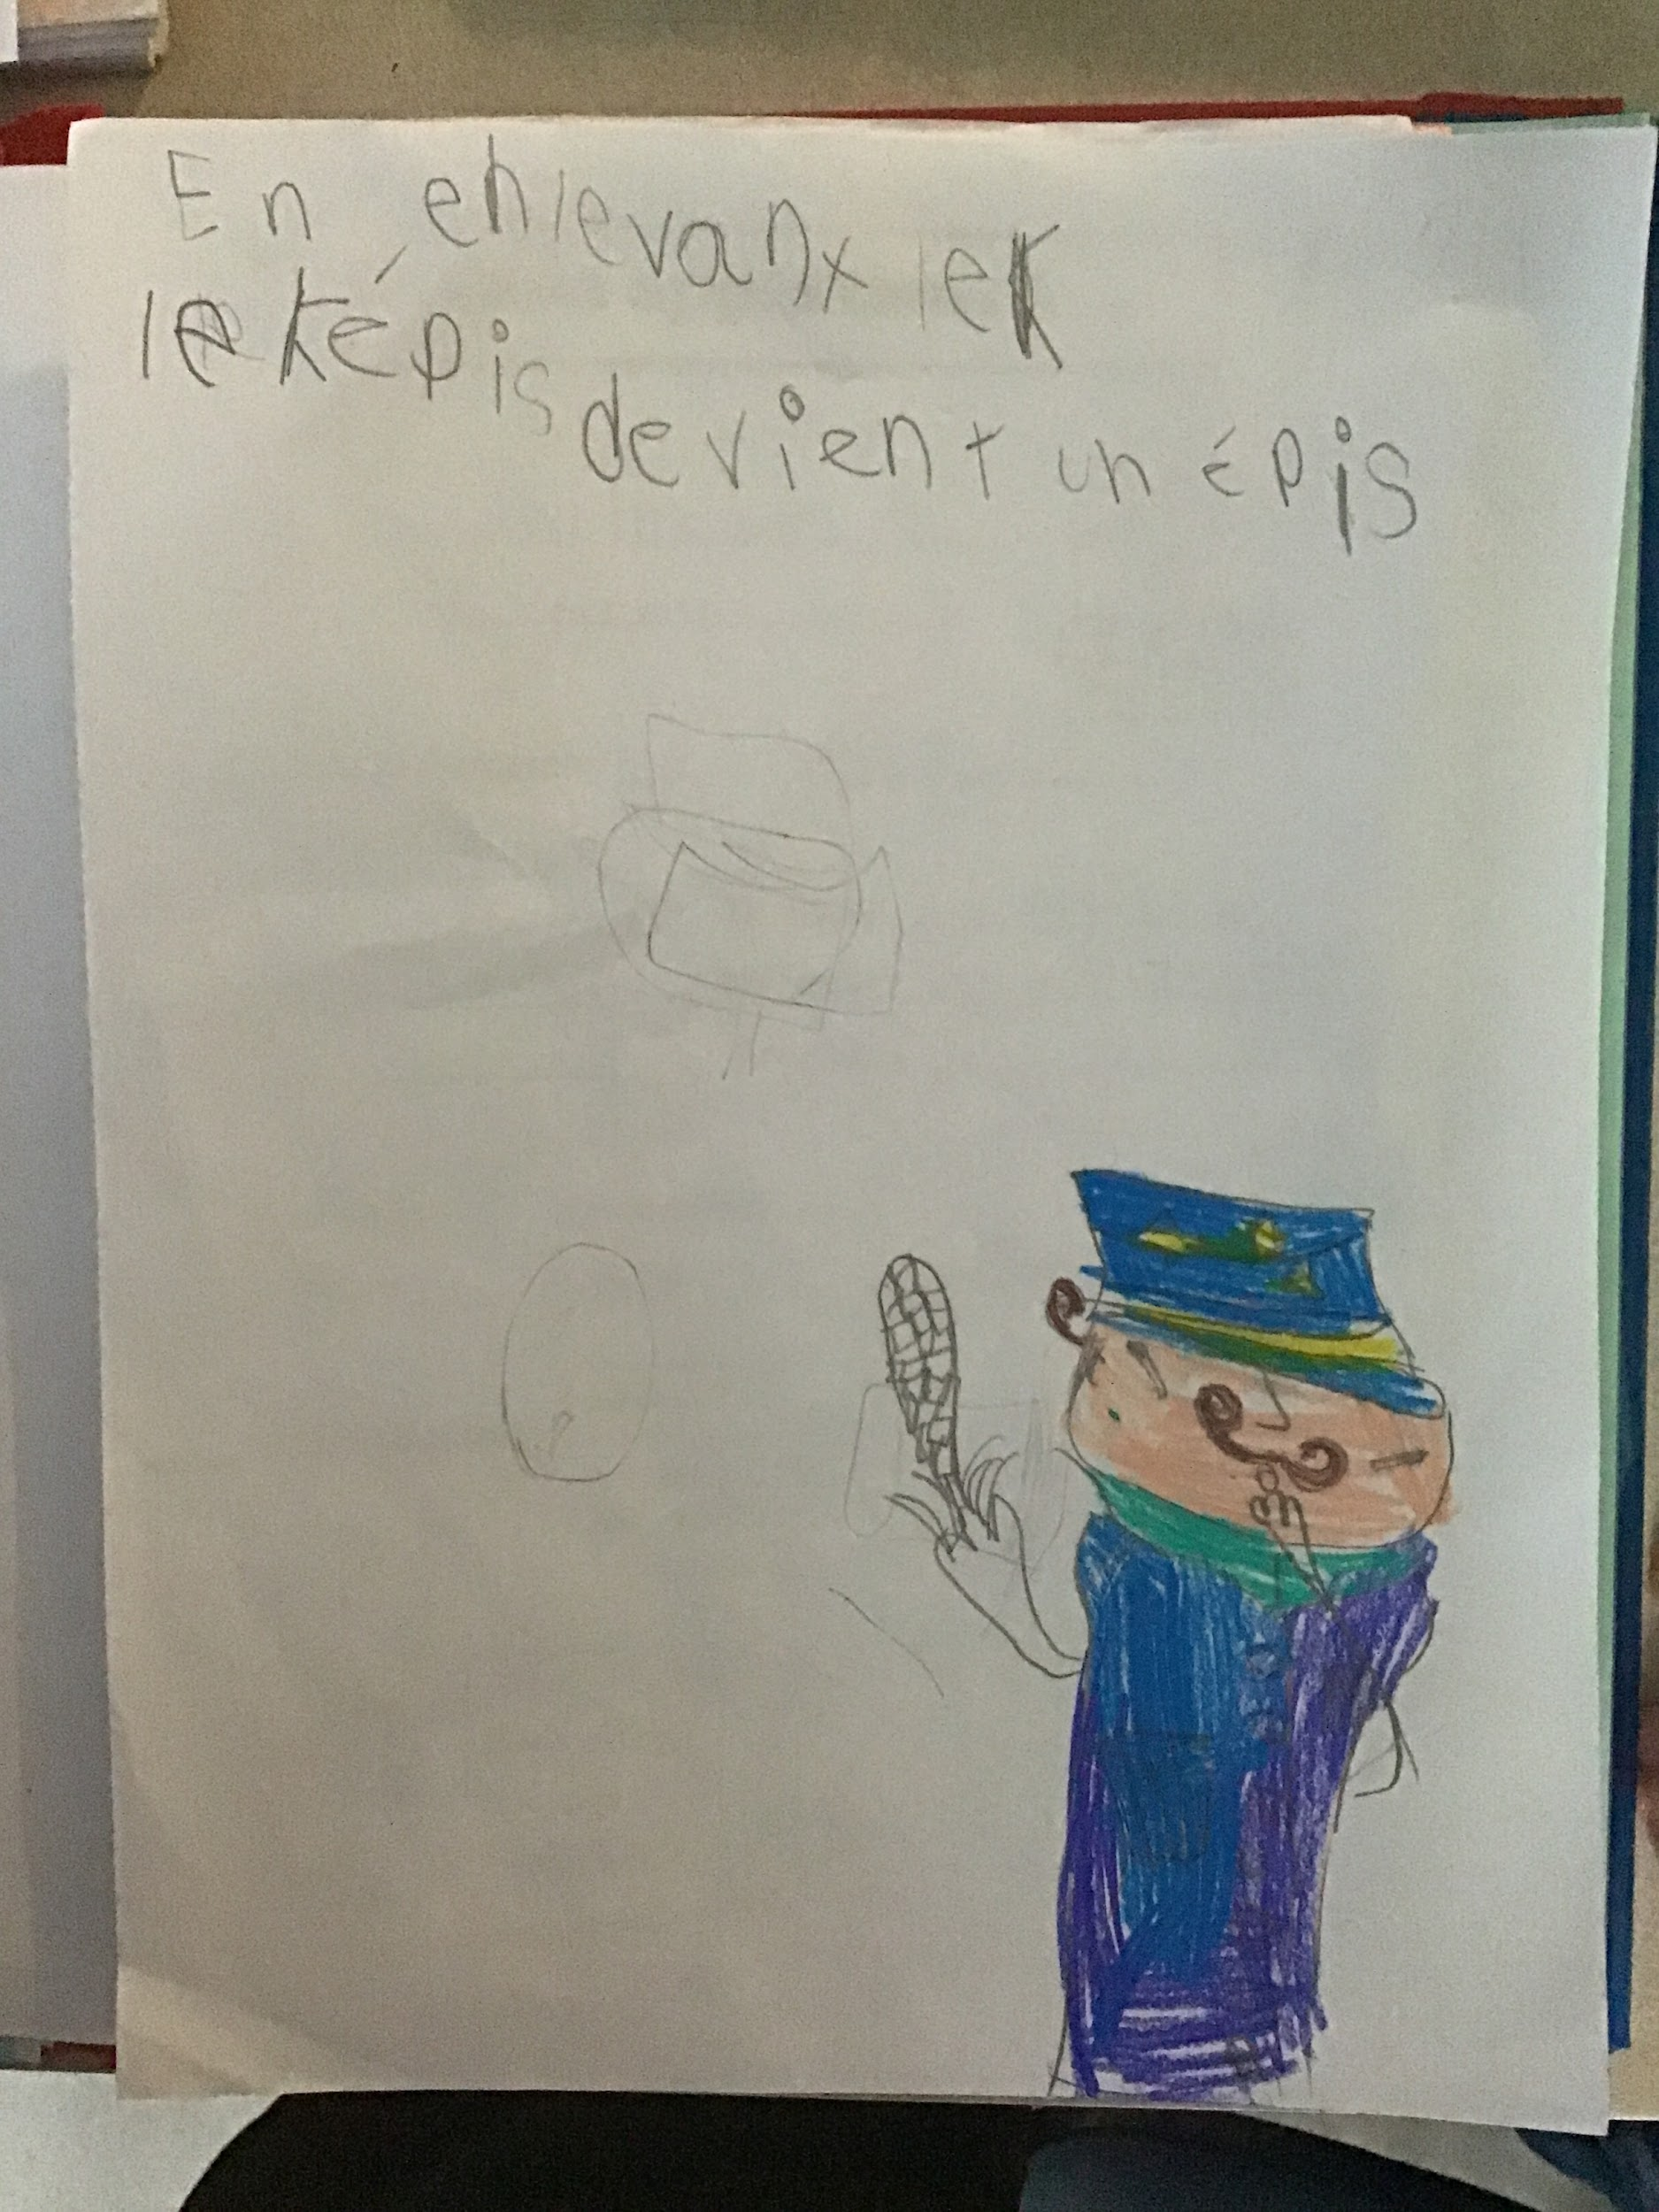 En enlevant le k
le képis devient un épis